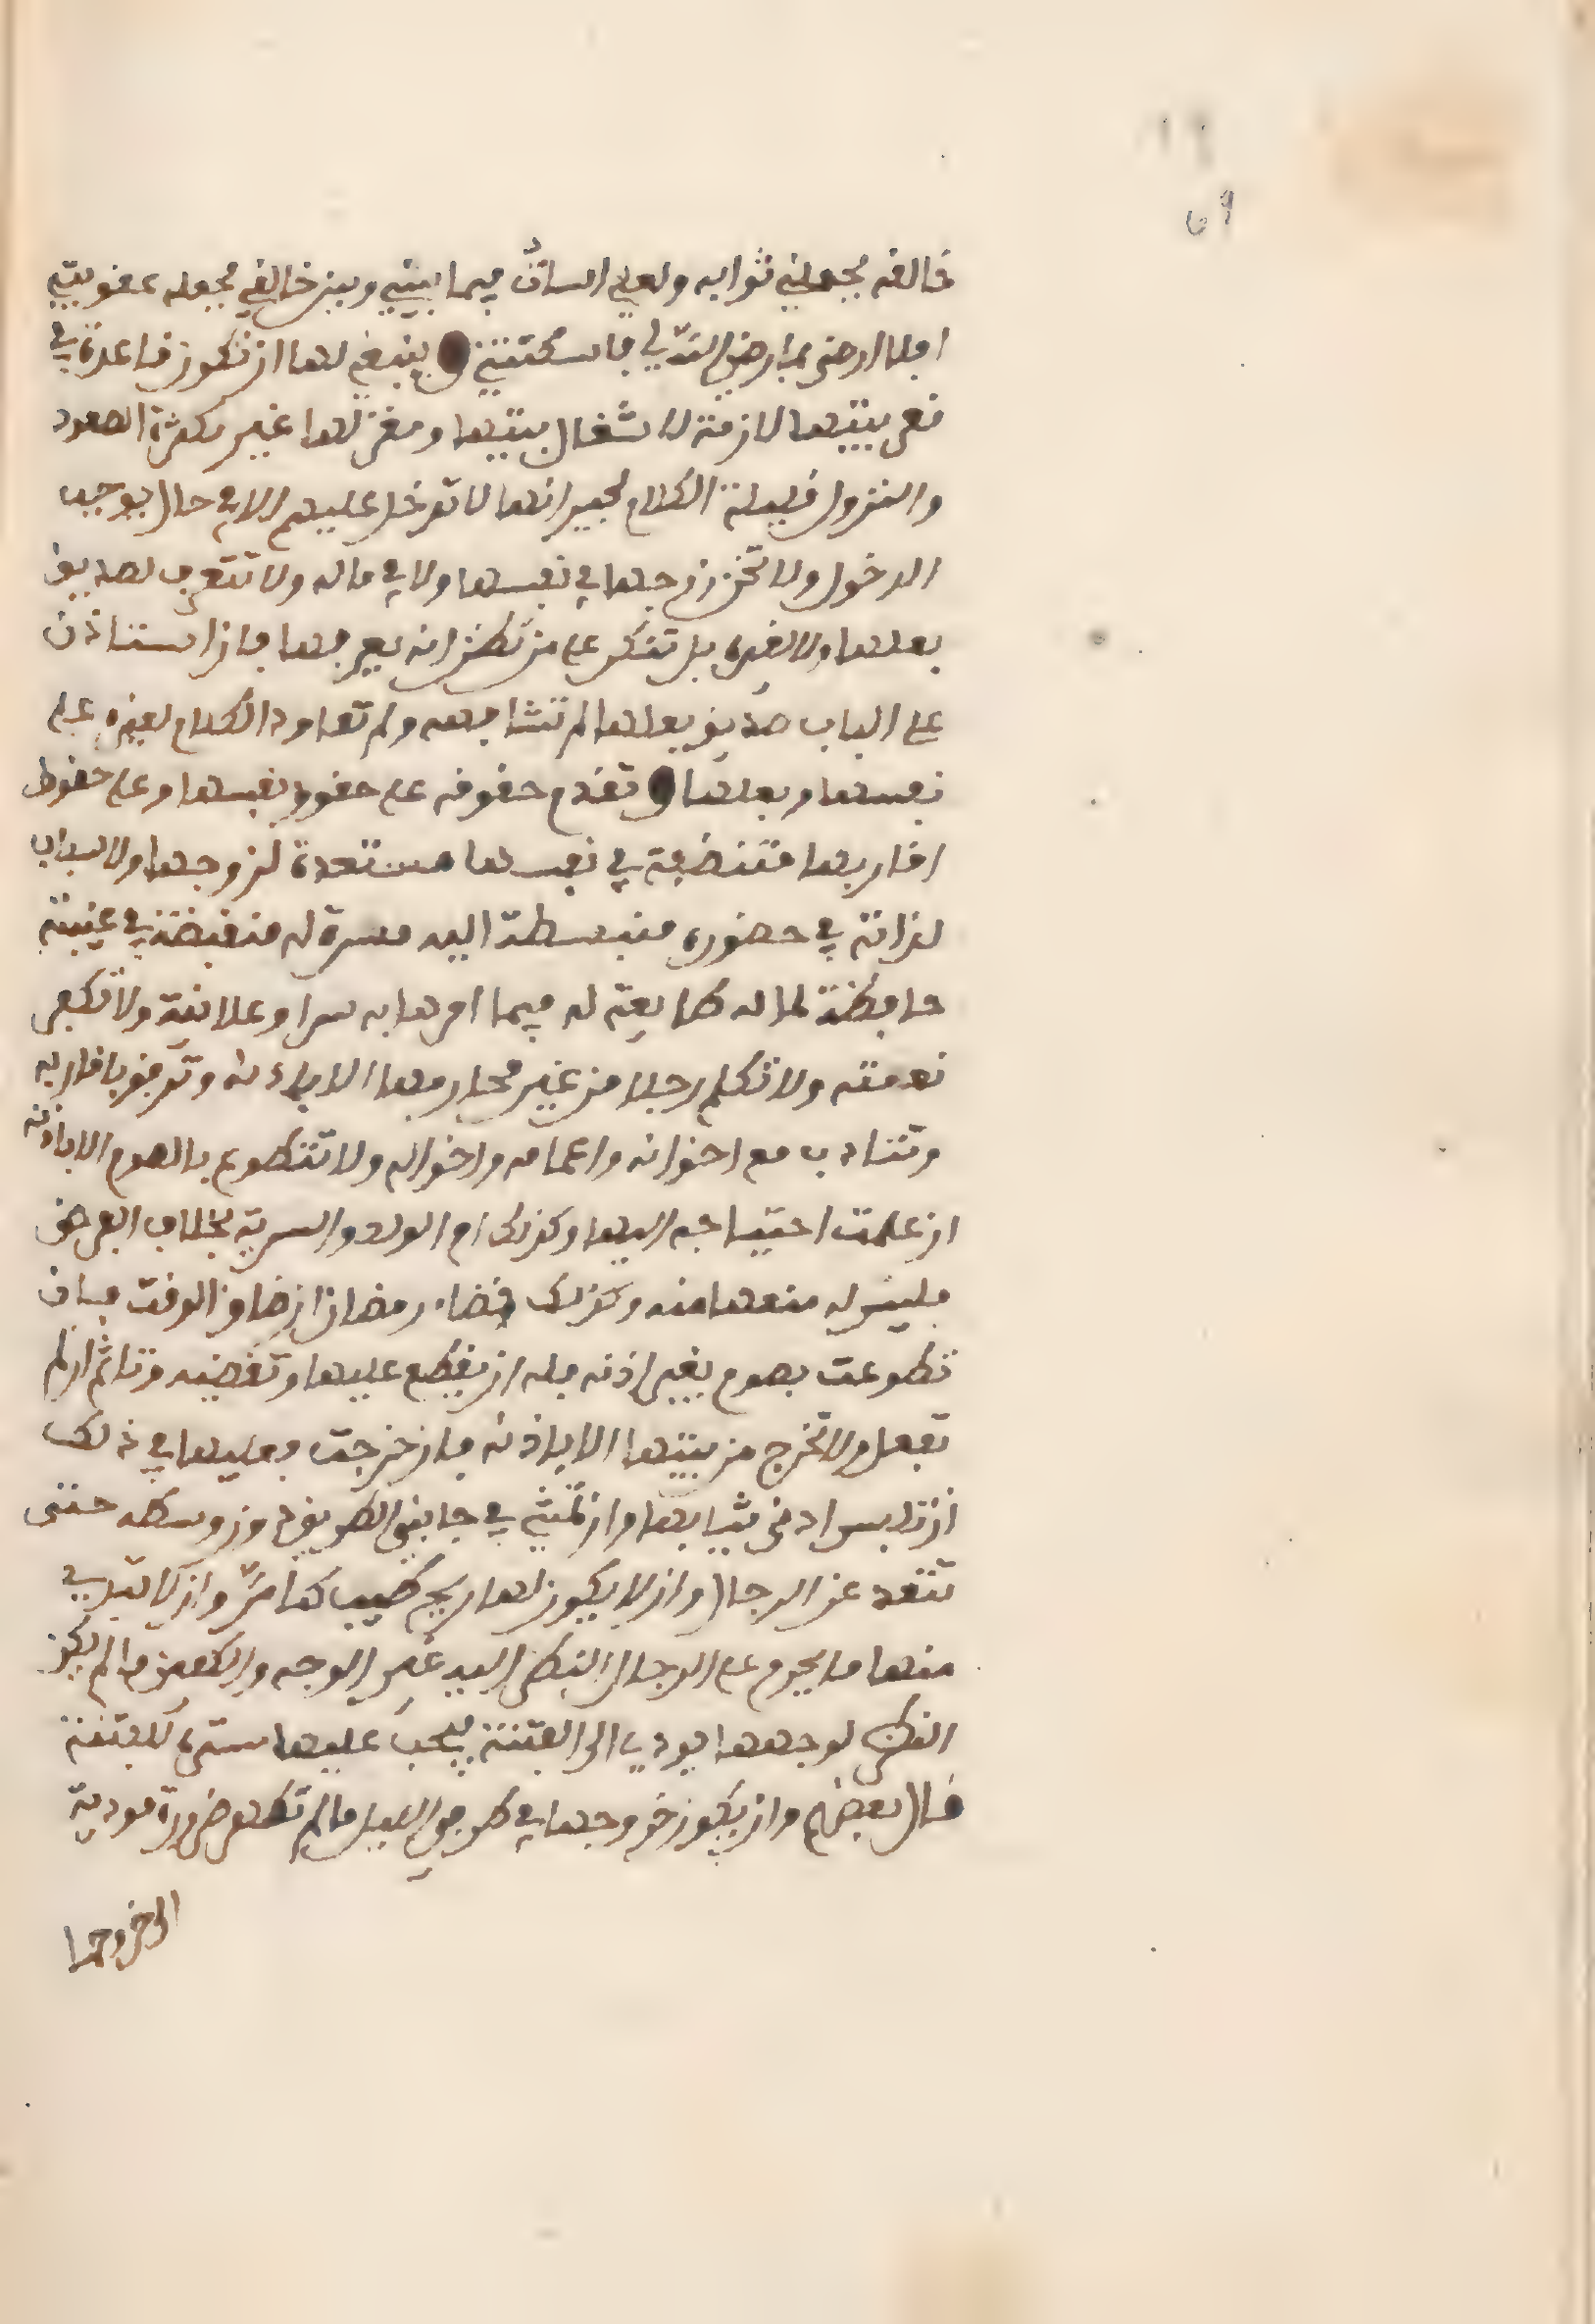 69
خالقه فجعلني ثوابه ولعلي اسات فيما بيني وبين خالقي فجعله عقوبتي
افلا ارضى بما رضي الله لي فاسكتتني وينبغي لها ان تكون قاعدة في
قعر بيتها لازمة لاشغال بيتها ومغزلها غير مكثرة الصعود
والنزول قليلة الكلام لجيرانها لا تدخل عليهم الا في حال يوجب
الدخول ولا تخن زوجها في نفسها ولا في ماله ولا تتعرف لصديق
بعلها ولا لغيره بل تتنكر على من تظن انه يعرفها فان استاذن
على الباب صديق بعلها لم تشافهه ولم تعاود الكلام لغيره على
نفسها وبعلها وتقدم حقوقه على حقوق نفسها وعلى حقوق
اقاربها متنظفة في نفسها مستعدة لزوجها ولاسباب
لذاته في حضوره منبسطة اليه مسرة له منقبضة في غيبته
حافظة لماله طايعة له فيما امرها به سرا وعلانية ولا تكفر
نعمته ولا تكلم رجلا من غير محارمها الا باذنه وترفق باقاربه
وتتادب مع اخوانه واعمامه واخواله ولا تتطوع بالصوم الا باذنه
ان علمت احتياجه اليها وكذلك ام الولد والسرية بخلاف الفرض
فليس له منعها منه وكذلك قضاء رمضان ان ضاق الوقت فان
تطوعت بصوم بغير اذنه فله ان يقطع عليها وتقضيه وتاثم ان لم
تفعل ولا تخرج من بيتها الا باذنه فان خرجت فعليها في ذلك
ان تلبس ادنى ثيابها وان تمشي في جانبي الطريق دون وسطه حتى
تبعد عن الرجال وان لا يكون لها ريح طيب كما مر وان لا تبدي
منها ما يحرم على الرجال النظر اليه غير الوجه والكفين ما لم يكن
النظر لوجهها يودي الى الفتنة فيجب عليها ستره للفتنة
قال بعضهم وان يكون خروجها في طرفي الليل ما لم تضطر ضرورة مودية
الى خروجها